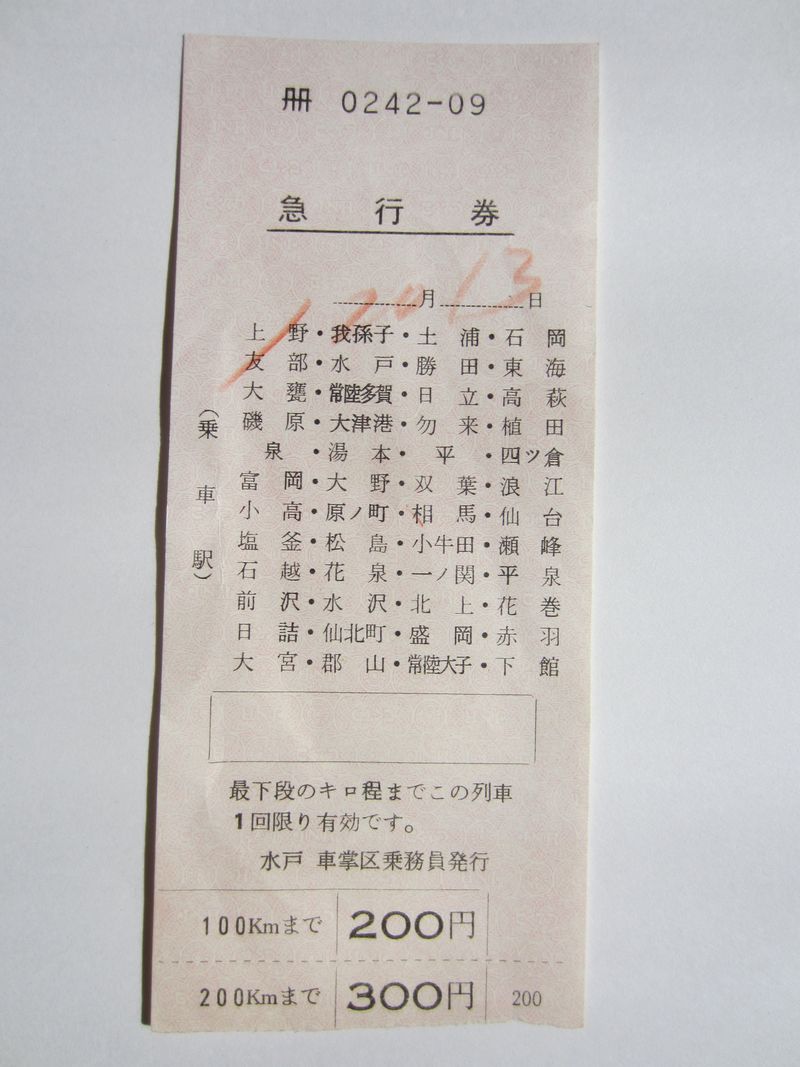 冊 0242-09
急行券
12013
月 日
上野・我孫子・土浦・石岡
友部・水戸・勝田・東海
大甕・常陸多賀・日立・高萩
磯原・大津港・勿来・植田
泉・湯本・平・四ツ倉
富岡・大野・双葉・浪江
小高・原ノ町・相馬・仙台
塩釜・松島・小牛田・瀬峰
石越・花泉・一ノ関・平泉
前沢・水沢・北上・花巻
日詰・仙北町・盛岡・赤羽
大宮・郡山・常陸大子・下館
(乗車駅)
最下段のキロ程までこの列車
1回限り有効です。
水戸 車掌区乗務員発行
100Kmまで 200円
200Kmまで 300円 200